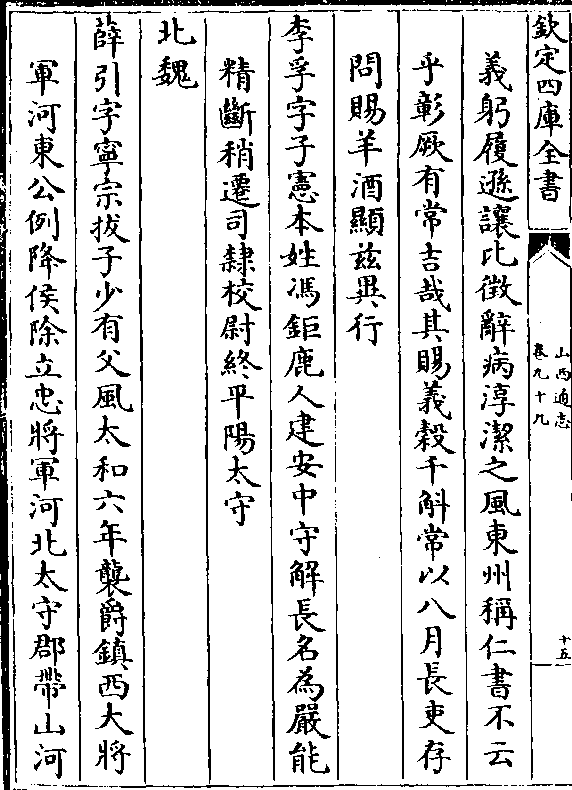 欽定四庫全書
山西通志
卷九十九
十五
義躬履遜讓比徵辭病淳潔之風東州稱仁書不云
乎彰厥有常吉哉其賜義穀千斛常以八月長吏存
問賜羊酒顯兹異行
李孚字子憲本姓馮鉅鹿人建安中守解長名為嚴能
精斷稍遷司隸校尉終平陽太守
北魏
薛引字寧宗拔子少有父風太和六年襲爵鎮西大將
軍河東公例降侯除立忠將軍河北太守郡帶山河